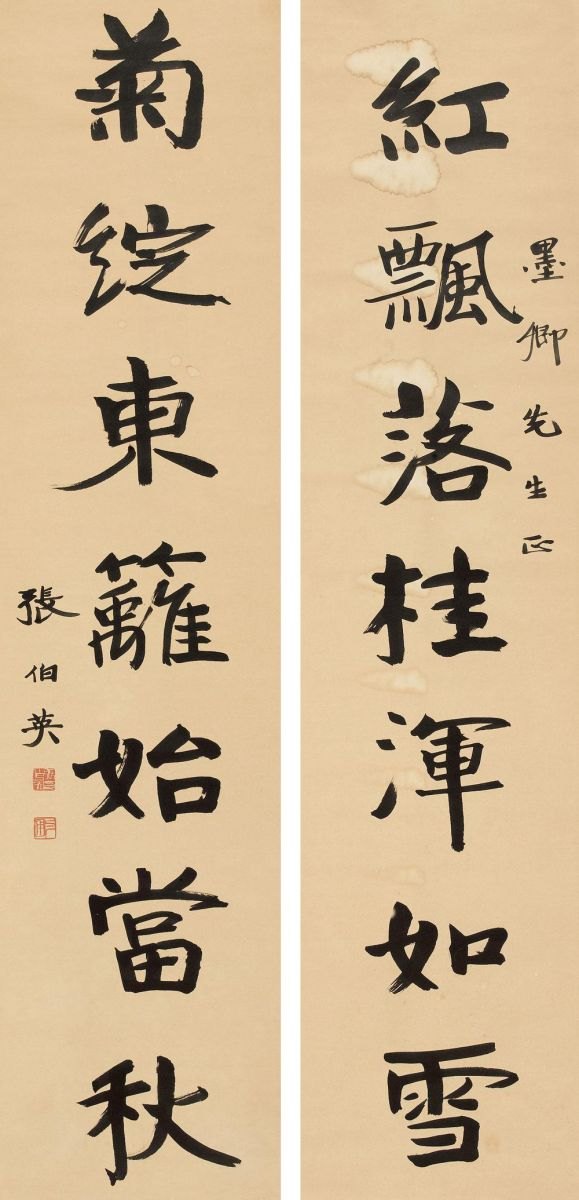 墨卿先生正
紅飄落桂渾如雪
菊綻東籬始當秋
張伯英